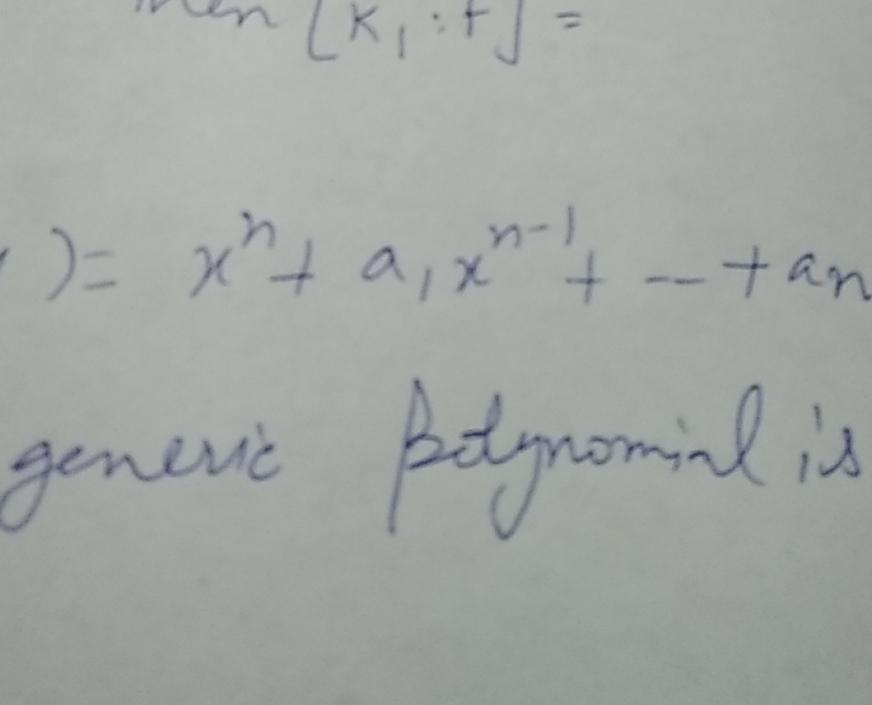 then [K₁ : F] =
) = xⁿ + a₁xⁿ⁻¹ + -- + an
generic polynomial is